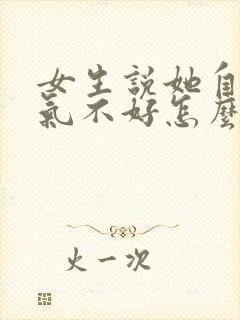 女生説她自
氣不好怎麼
火一次